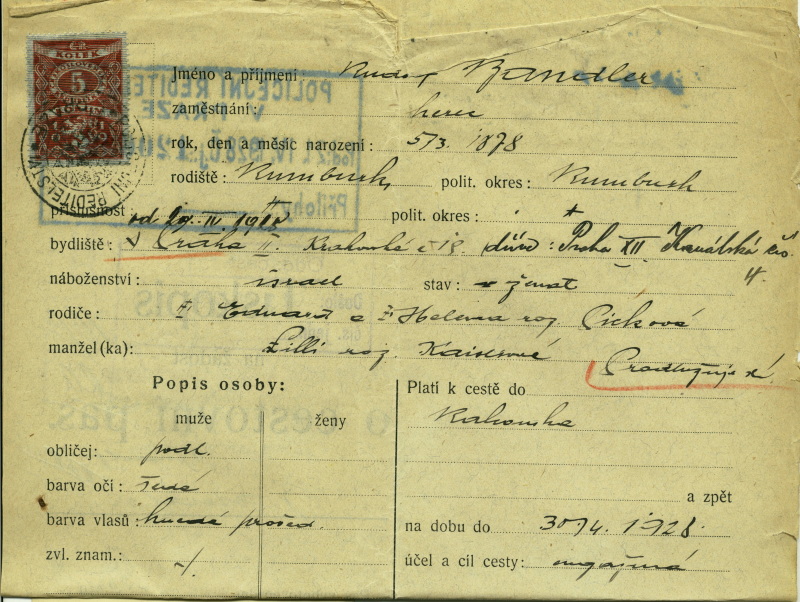 KOLEK
5
POLICEJNÍ ŘEDITEL
V PRAZE
Přílohy
Jméno a příjmení: Rudolf Bandler
zaměstnání: herec
rok, den a měsíc narození: 5/3. 1878
rodiště: Rumburk polit. okres: Rumburk
příslušnost: polit. okres:
od 29. IV.
bydliště: Praha II. Krakovská č 18. dříve: Praha XII Kanálská čís. 4.
náboženství: israel stav: ženat
rodiče: Eduard a Helena roz.
manžel (ka): Lilli roz. Kaiserové
Prodlužuje se
Popis osoby:
muže ženy
obličej: podl.
barva očí: šedé
barva vlasů: hnědé prošed.
zvl. znam.: -/.
Platí k cestě do
Rakouska
a zpět
na dobu do 30/4. 1928.
účel a cíl cesty: